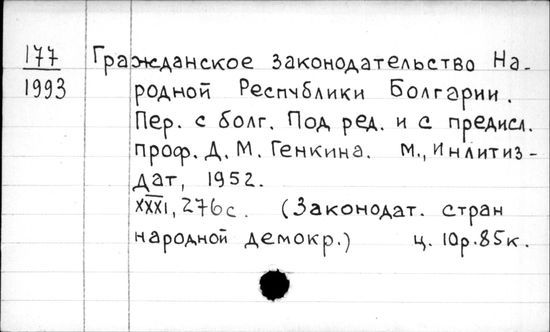 177 Гражданское законодательство На-
1993 родной Республики Болгарии.
Пер. с болг. Под ред. и с предисл.
проф. Д. М. Генкина. М., Инлитиз-
дат, 1952.
XXXI, 276с. (Законодат. стран
народной демокр.) ц. 10р.85к.